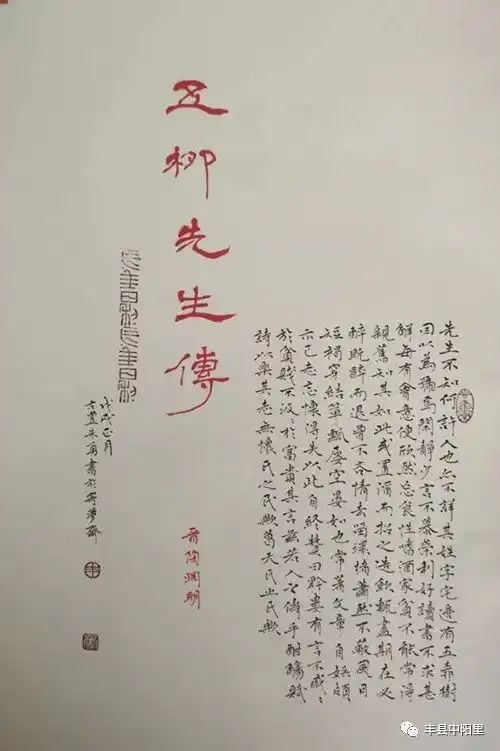 先生不知何許人也亦不詳其姓字宅邊有五柳樹
因以為號焉閑靜少言不慕榮利好讀書不求甚
解每有會意便欣然忘食性嗜酒家貧不能常得
親舊知其如此或置酒而招之造飲輒盡期在必
醉既醉而退曾不吝情去留環堵蕭然不蔽風日
短褐穿結簞瓢屢空晏如也常著文章自娛頗
示己志忘懷得失以此自終贊曰黔婁有言不戚々
於貧賤不汲々於富貴其言茲若人之儔乎酣觴賦
詩以樂其志無懷氏之民歟葛天氏之民歟
五柳先生傳
晉陶淵明
戊戌正月
古豐朱勇書於寄夢齋
丰县中阳里